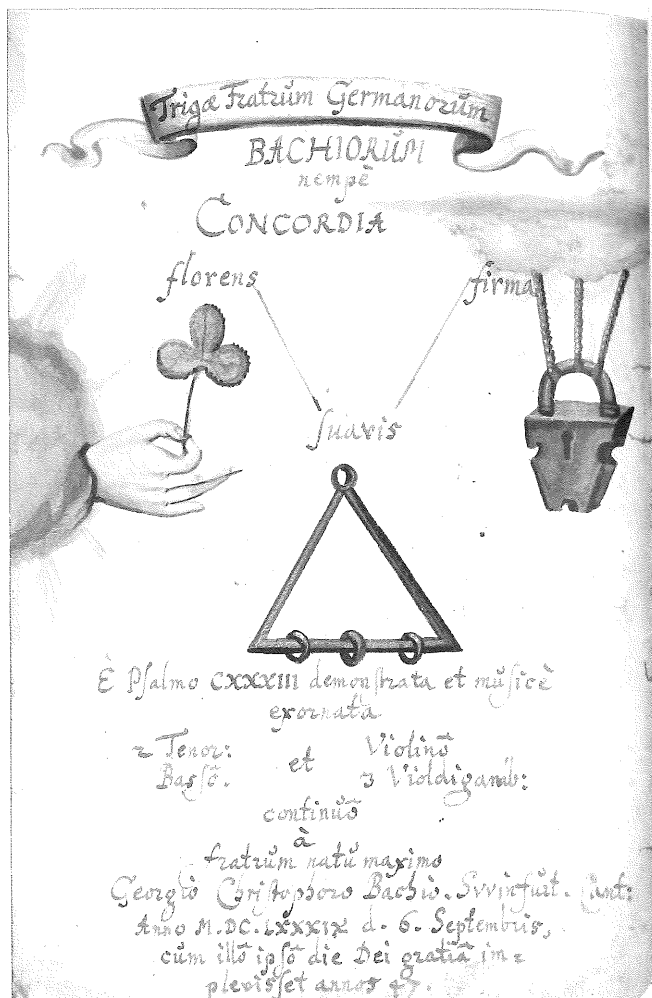 Trigæ Fratrŭm Germanorŭm
BACHIORŬM
nempè
CONCORDIA
florens
firma
ſuavis
È Pſalmo CXXXIII demonſtrata et mŭſicè
exornata
2 Tenor: et Violinō
Baſſō. 3 Violdigamb:
continŭō
à
fratrŭm natŭ maximo
Georgio Chriſtophoro Bachio. Svvinfŭrt. Cant:
Anno M.DC.LXXXIX d. 6. Septembris,
cŭm illō ipſō die Dei gratiā im=
plevisſet annos 47.